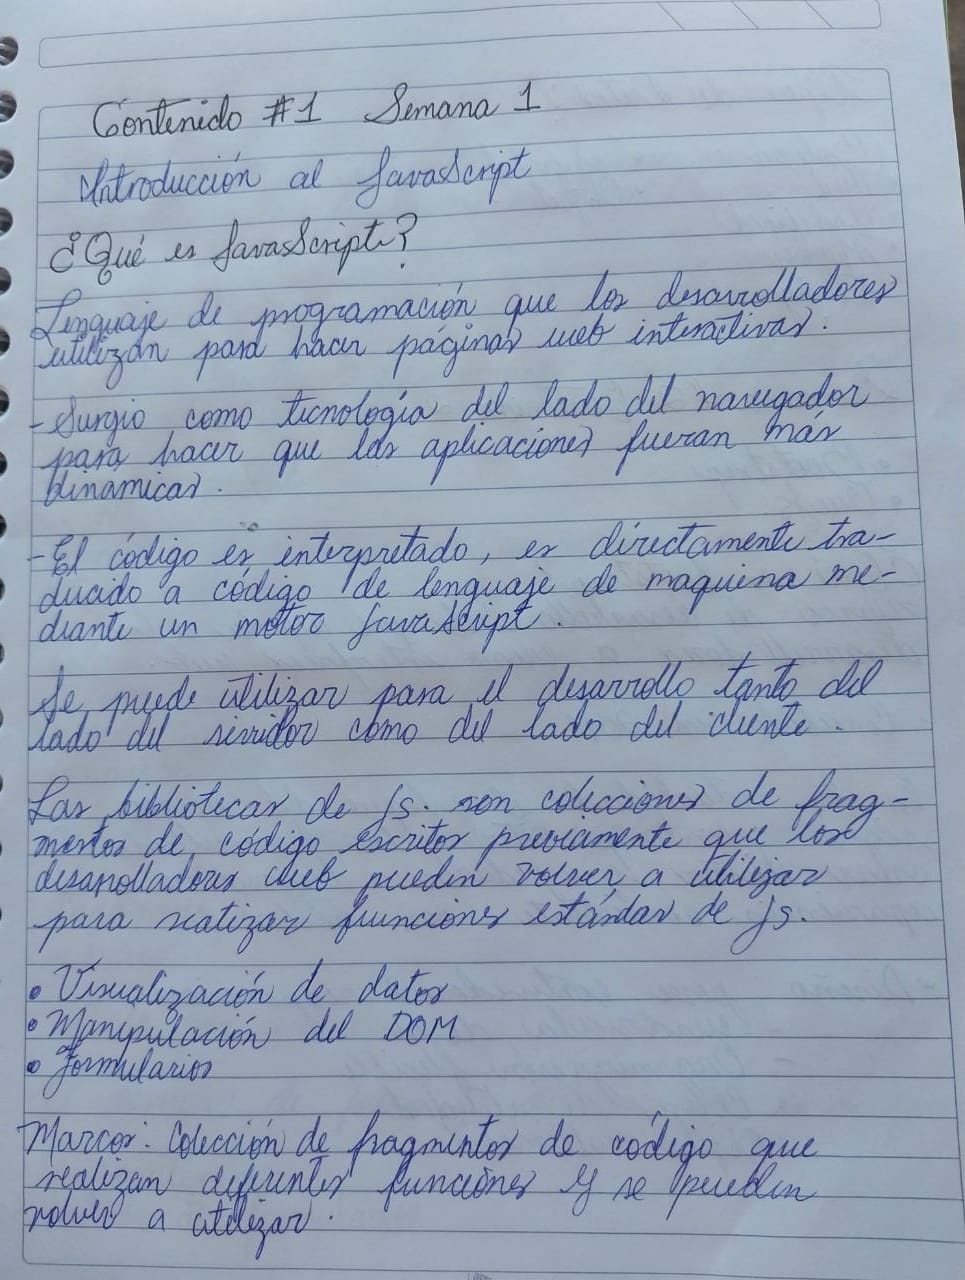 Contenido #1 Semana 1
Introducción al JavaScript
¿Qué es JavaScript?
Lenguaje de programación que los desarrolladores
utilizan para hacer páginas web interactivas.
- Surgio como tecnología del lado del navegador
para hacer que las aplicaciones fueran más
dinamicas.
- El código es interpretado, es directamente tra-
ducido a código de lenguaje de maquina me-
diante un motor JavaScript.
Se puede utilizar para el desarrollo tanto del
lado del servidor como del lado del cliente.
Las bibliotecas de Js. son colecciones de frag-
mentos de código escritos previamente que los
desarolladores web pueden volver a utilizar
para realizar funciones estándar de Js.
• Visualización de datos
• Manipulación del DOM
• Formularios
Marcos: Colección de fragmentos de código que
realizan diferentes funciones y se pueden
volver a utilizar.